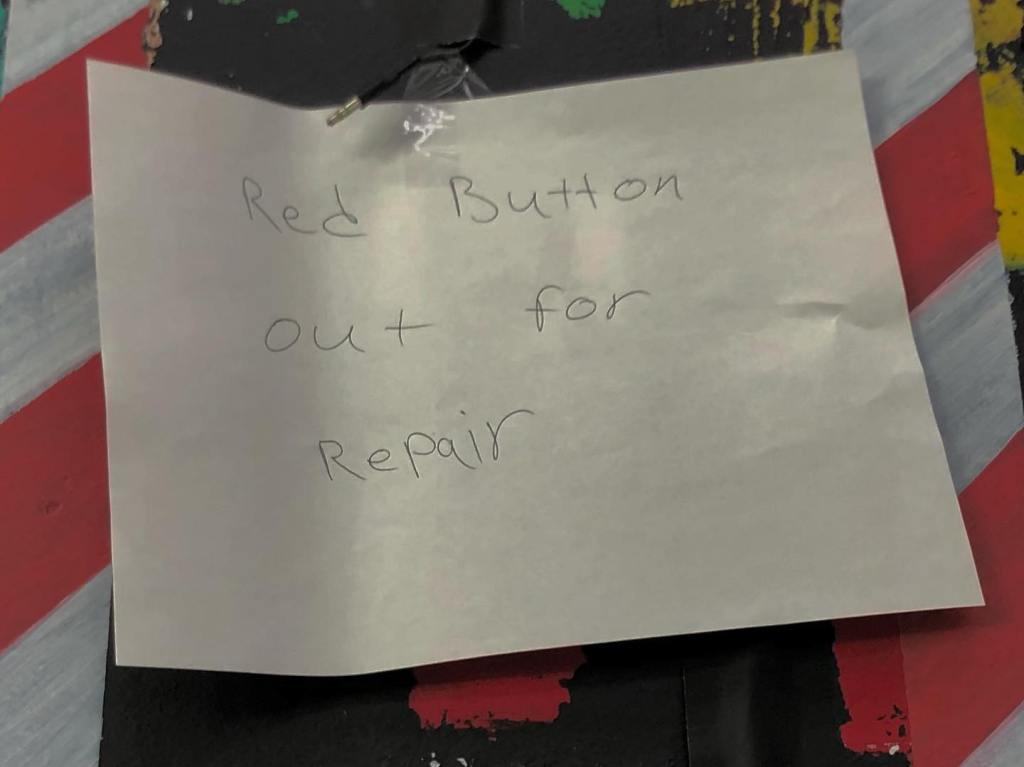 Red Button
out for
Repair